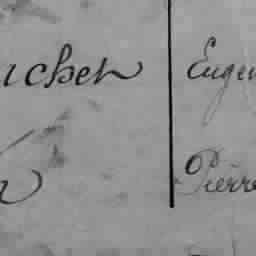 uchet Eugen
Pierre